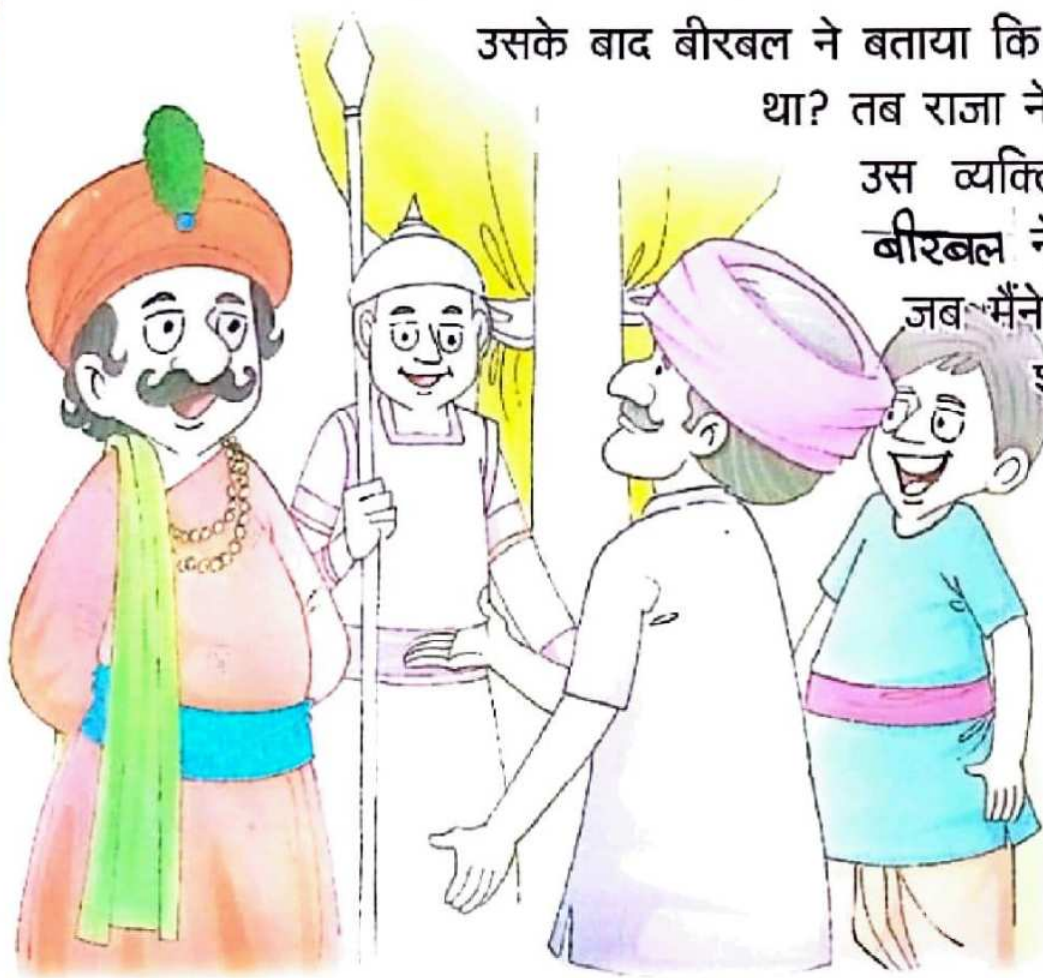 उसके बाद बीरबल ने बताया कि
था? तब राजा ने
उस व्यक्ति
बीरबल ने
जब मैंने